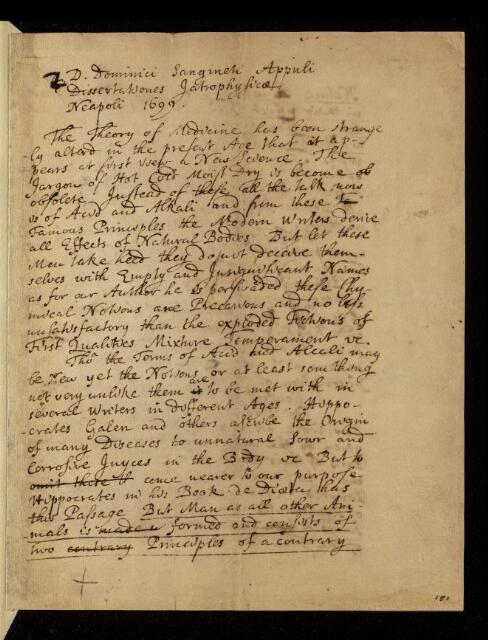 2 D. Dominici Sangineti Appuli
Dissertationes Iatrophysicæ
Neapoli 1699.
The Theory of Medicine has been strange
ly alterd in the present Age that it ap-
pears at first view a New Science. The
Jargon of Hot Cold Moist Dry is become ob
obsolete Instead of these all the talk now
is of Acid and Alkali and from these 
Famous Principles the Modern Writers derive
all Effects of Natural Bodies. But let these
Men take heed they do not deceive them-
selves with Empty and Insignificant Names
as for our Author he is perswaded these Chy-
mical Notions are Precarious and no less
unsatisfactory than the exploded Fictions of
First Qualities Mixture Temperament &c.
Tho the Terms of Acid and Alcali may
be New yet the Notions or at least something
not very unlike them are to be met with in
several Writers in different Ages. Hippo-
crates Galen and others ascribe the Origin
of many Diseases to unnatural Sour and
Corrosive Juyces in the Body &c But to
omit there come nearer to our purpose
Hippocrates in his Book de Diæta has
this Passage But Man as all other Ani
mals is made formed and consists of
two contrary Principles of a contrary
181